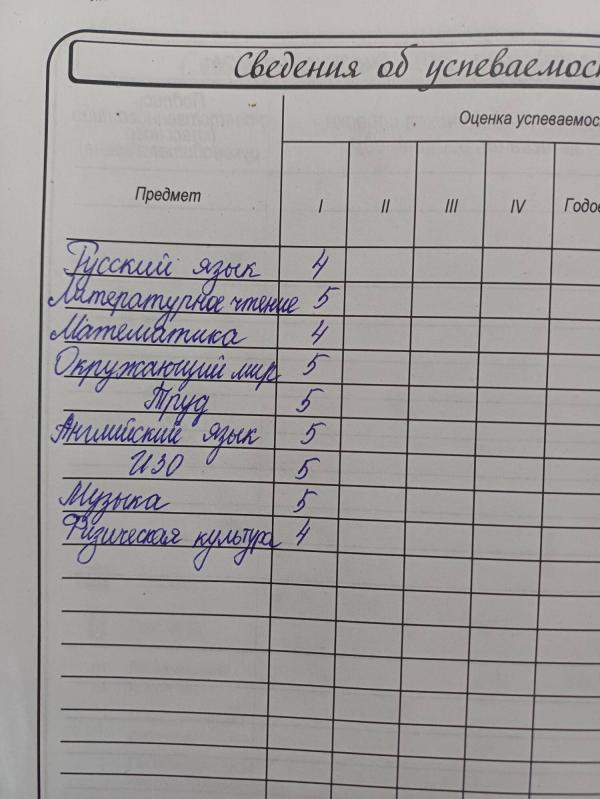 Сведения об успеваемос
Оценка успеваемос
Предмет I II III IV Годо
Русский язык 4
Литературное чтение 5
Математика 4
Окружающий мир 5
Труд 5
Английский язык 5
ИЗО 5
Музыка 5
Физическая культура 4